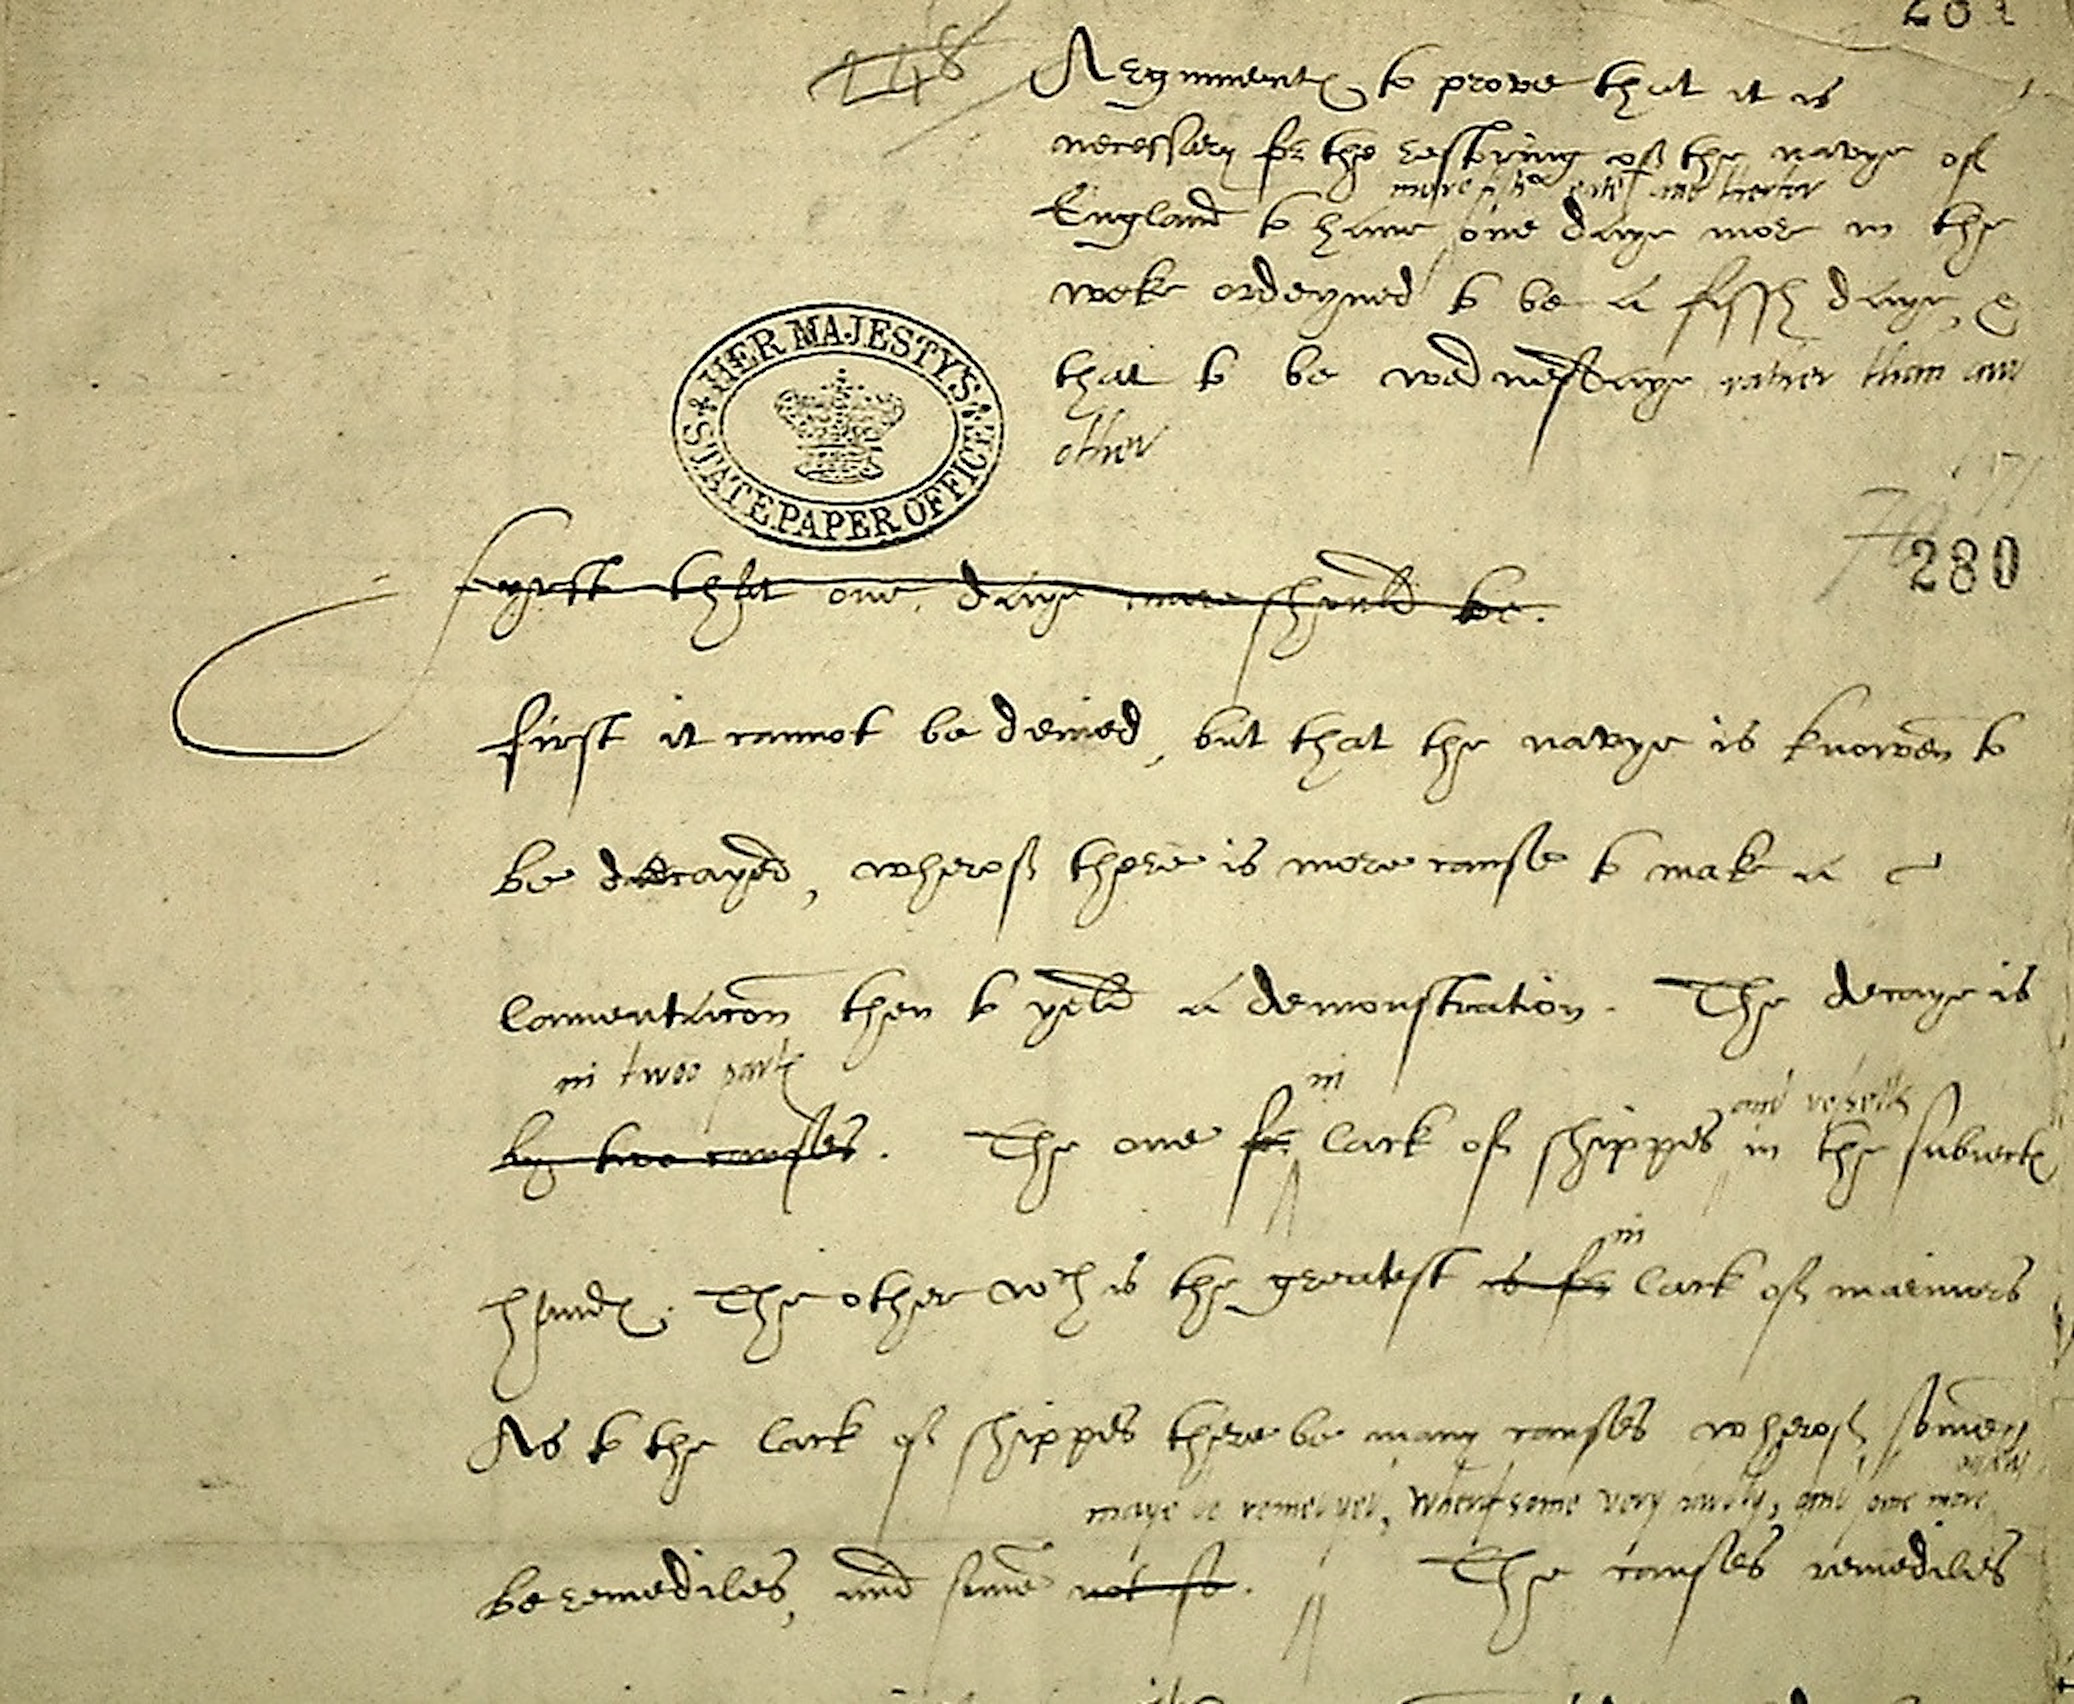 281
148
Argumentes to prove that it is
necessary for the restoring off the navye of
more
England to haue one daye more in the
weke ordeyned to be a fissh daye, &
that to be wednessdaye rather than anie
other
HER MAJESTY'S STATE PAPER OFFICE
280
fyrst that one daye more should be.
first it cannot be denied, but that the navye is knowen to
be decayed, wherof there is more cause to make a
lamentacion then to yeld a demonstration. The decaye is
in twoo partes
by two causes. The one for in lack of shippes and vessells in the subiectes
handes. The other wch is the greatest is for in lack of mariners
As to the lack of shippes there be many causes wherof some
maye be remedyed, wherof some very easely, and some more
be remediles, and some not so. The causes remediles